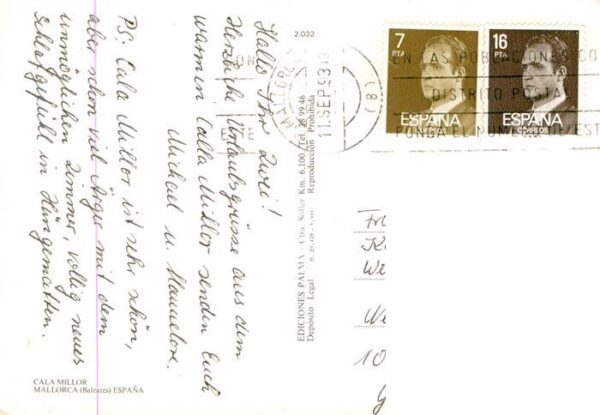 Hallo Ihr Zwei!
Herzliche Urlaubsgrüsse aus dem
warmen Calla Millor senden Euch
Michael u. Hannelore.
PS: Cala Millor ist sehr schön,
aber schon viel Ärger mit dem
unmöglichen Zimmer, völlig neues
Schlafgefühl in Hängematten.
CALA MILLOR
MALLORCA (Baleares) ESPAÑA
2.032
EDICIONES PALMA - Ctra. Soller Km. 6,100
Deposito Legal
Reproducción Prohibida
7
PTA
ESPAÑA
CORREOS
16
PTA
ESPAÑA
CORREOS
MALLORCA
SEP 83
(8)
EN LAS POBLACIONES CO
DISTRITO POSTA
PONGA EL NUMERO DE EST
We
10